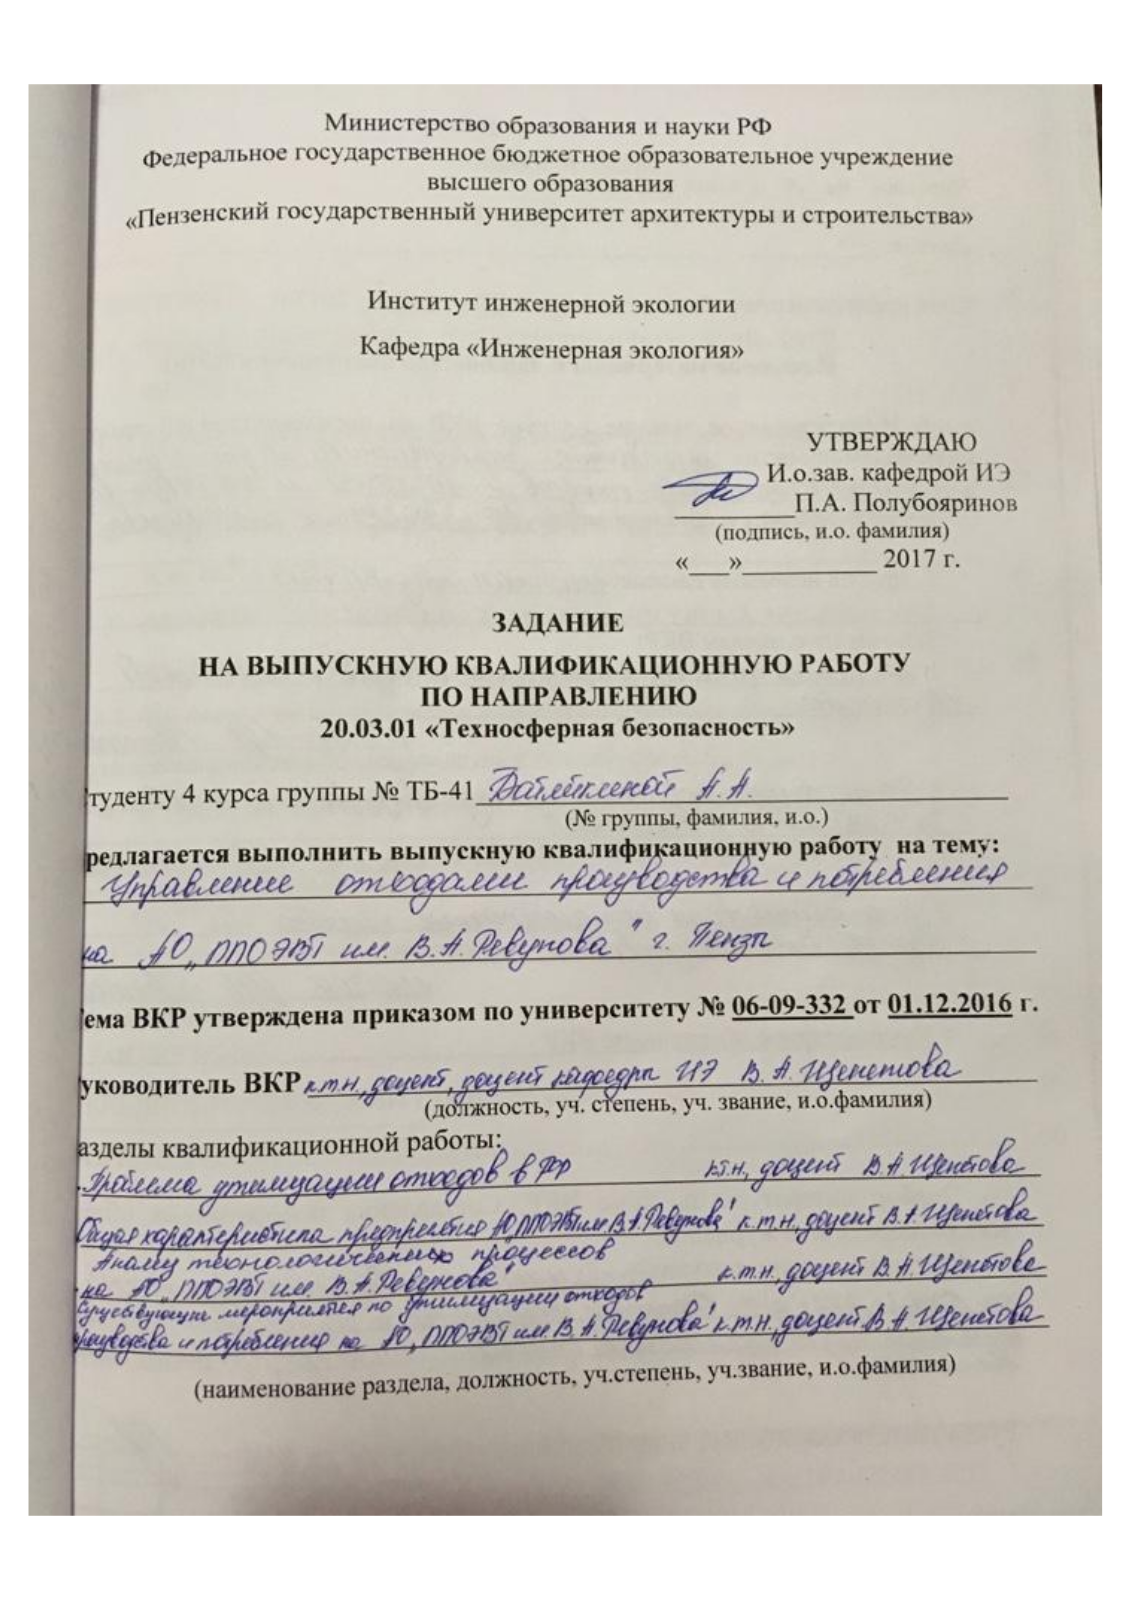 Министерство образования и науки РФ
Федеральное государственное бюджетное образовательное учреждение
высшего образования
«Пензенский государственный университет архитектуры и строительства»
Институт инженерной экологии
Кафедра «Инженерная экология»
УТВЕРЖДАЮ
И.о.зав. кафедрой ИЭ
__________П.А. Полубояринов
(подпись, и.о. фамилия)
«___»___________ 2017 г.
ЗАДАНИЕ
НА ВЫПУСКНУЮ КВАЛИФИКАЦИОННУЮ РАБОТУ
ПО НАПРАВЛЕНИЮ
20.03.01 «Техносферная безопасность»
туденту 4 курса группы № ТБ-41 А.А.
(№ группы, фамилия, и.о.)
редлагается выполнить выпускную квалификационную работу на тему:
Управление отходами производства и потребления
на АО „ППОЭВТ им. В.А. Ревунова" г. Пензы
ема ВКР утверждена приказом по университету № 06-09-332 от 01.12.2016 г.
уководитель ВКР к.т.н., доцент, доцент кафедры ИЭ В.А. Щепетова
(должность, уч. степень, уч. звание, и.о.фамилия)
азделы квалификационной работы:
Проблема утилизации отходов в РФ к.т.н., доцент В.А. Щепетова
Общая характеристика предприятия АО „ППОЭВТ им В.А. Ревунова" к.т.н., доцент В.А. Щепетова
Анализ технологических процессов
на АО „ППОЭВТ им. В.А. Ревунова" к.т.н., доцент В.А. Щепетова
Существующие мероприятия по утилизации отходов
производства и потребления на АО „ППОЭВТ им. В.А. Ревунова" к.т.н., доцент В.А. Щепетова
(наименование раздела, должность, уч.степень, уч.звание, и.о.фамилия)